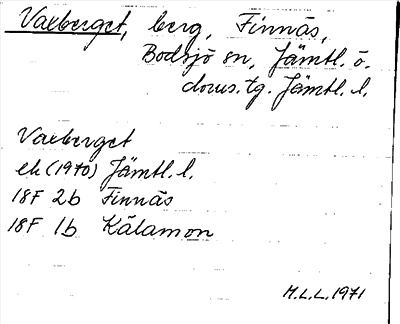 Vaxberget, berg, Finnäs,
Bodsjö sn, Jämtl. ö.
doms.tg. Jämtl. l.
Vaxberget
ek (1970) Jämtl. l.
18F 2b Finnäs
18F 1b Kälamon
M.L.L. 1971